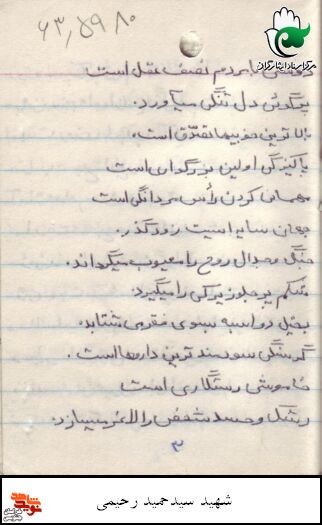 ۶۳,۵۹۸۰
مرکز اسناد ایثارگران
دوستی با مردم نصف عقل است
پرگوئی دل تنگی میآورد.
بالاترین خوبیها تصدّق است.
پاکیزگی اولین بزرگواری است
مهمانی کردن رأس مردانگی است
جهان سایه ایست زودگذر.
جنگ و جدال روح را معیوب میگرداند.
شکم پر جلوز یرکی را میگیرد.
بخیل دو اسبه بسوی فقر می شتابد.
گرسنگی سودمندترین داروها است.
خاموشی رستگاری است
رشک و حسد شخص را لاغر میسازد.
۳
شهید سیدحمید رحیمی